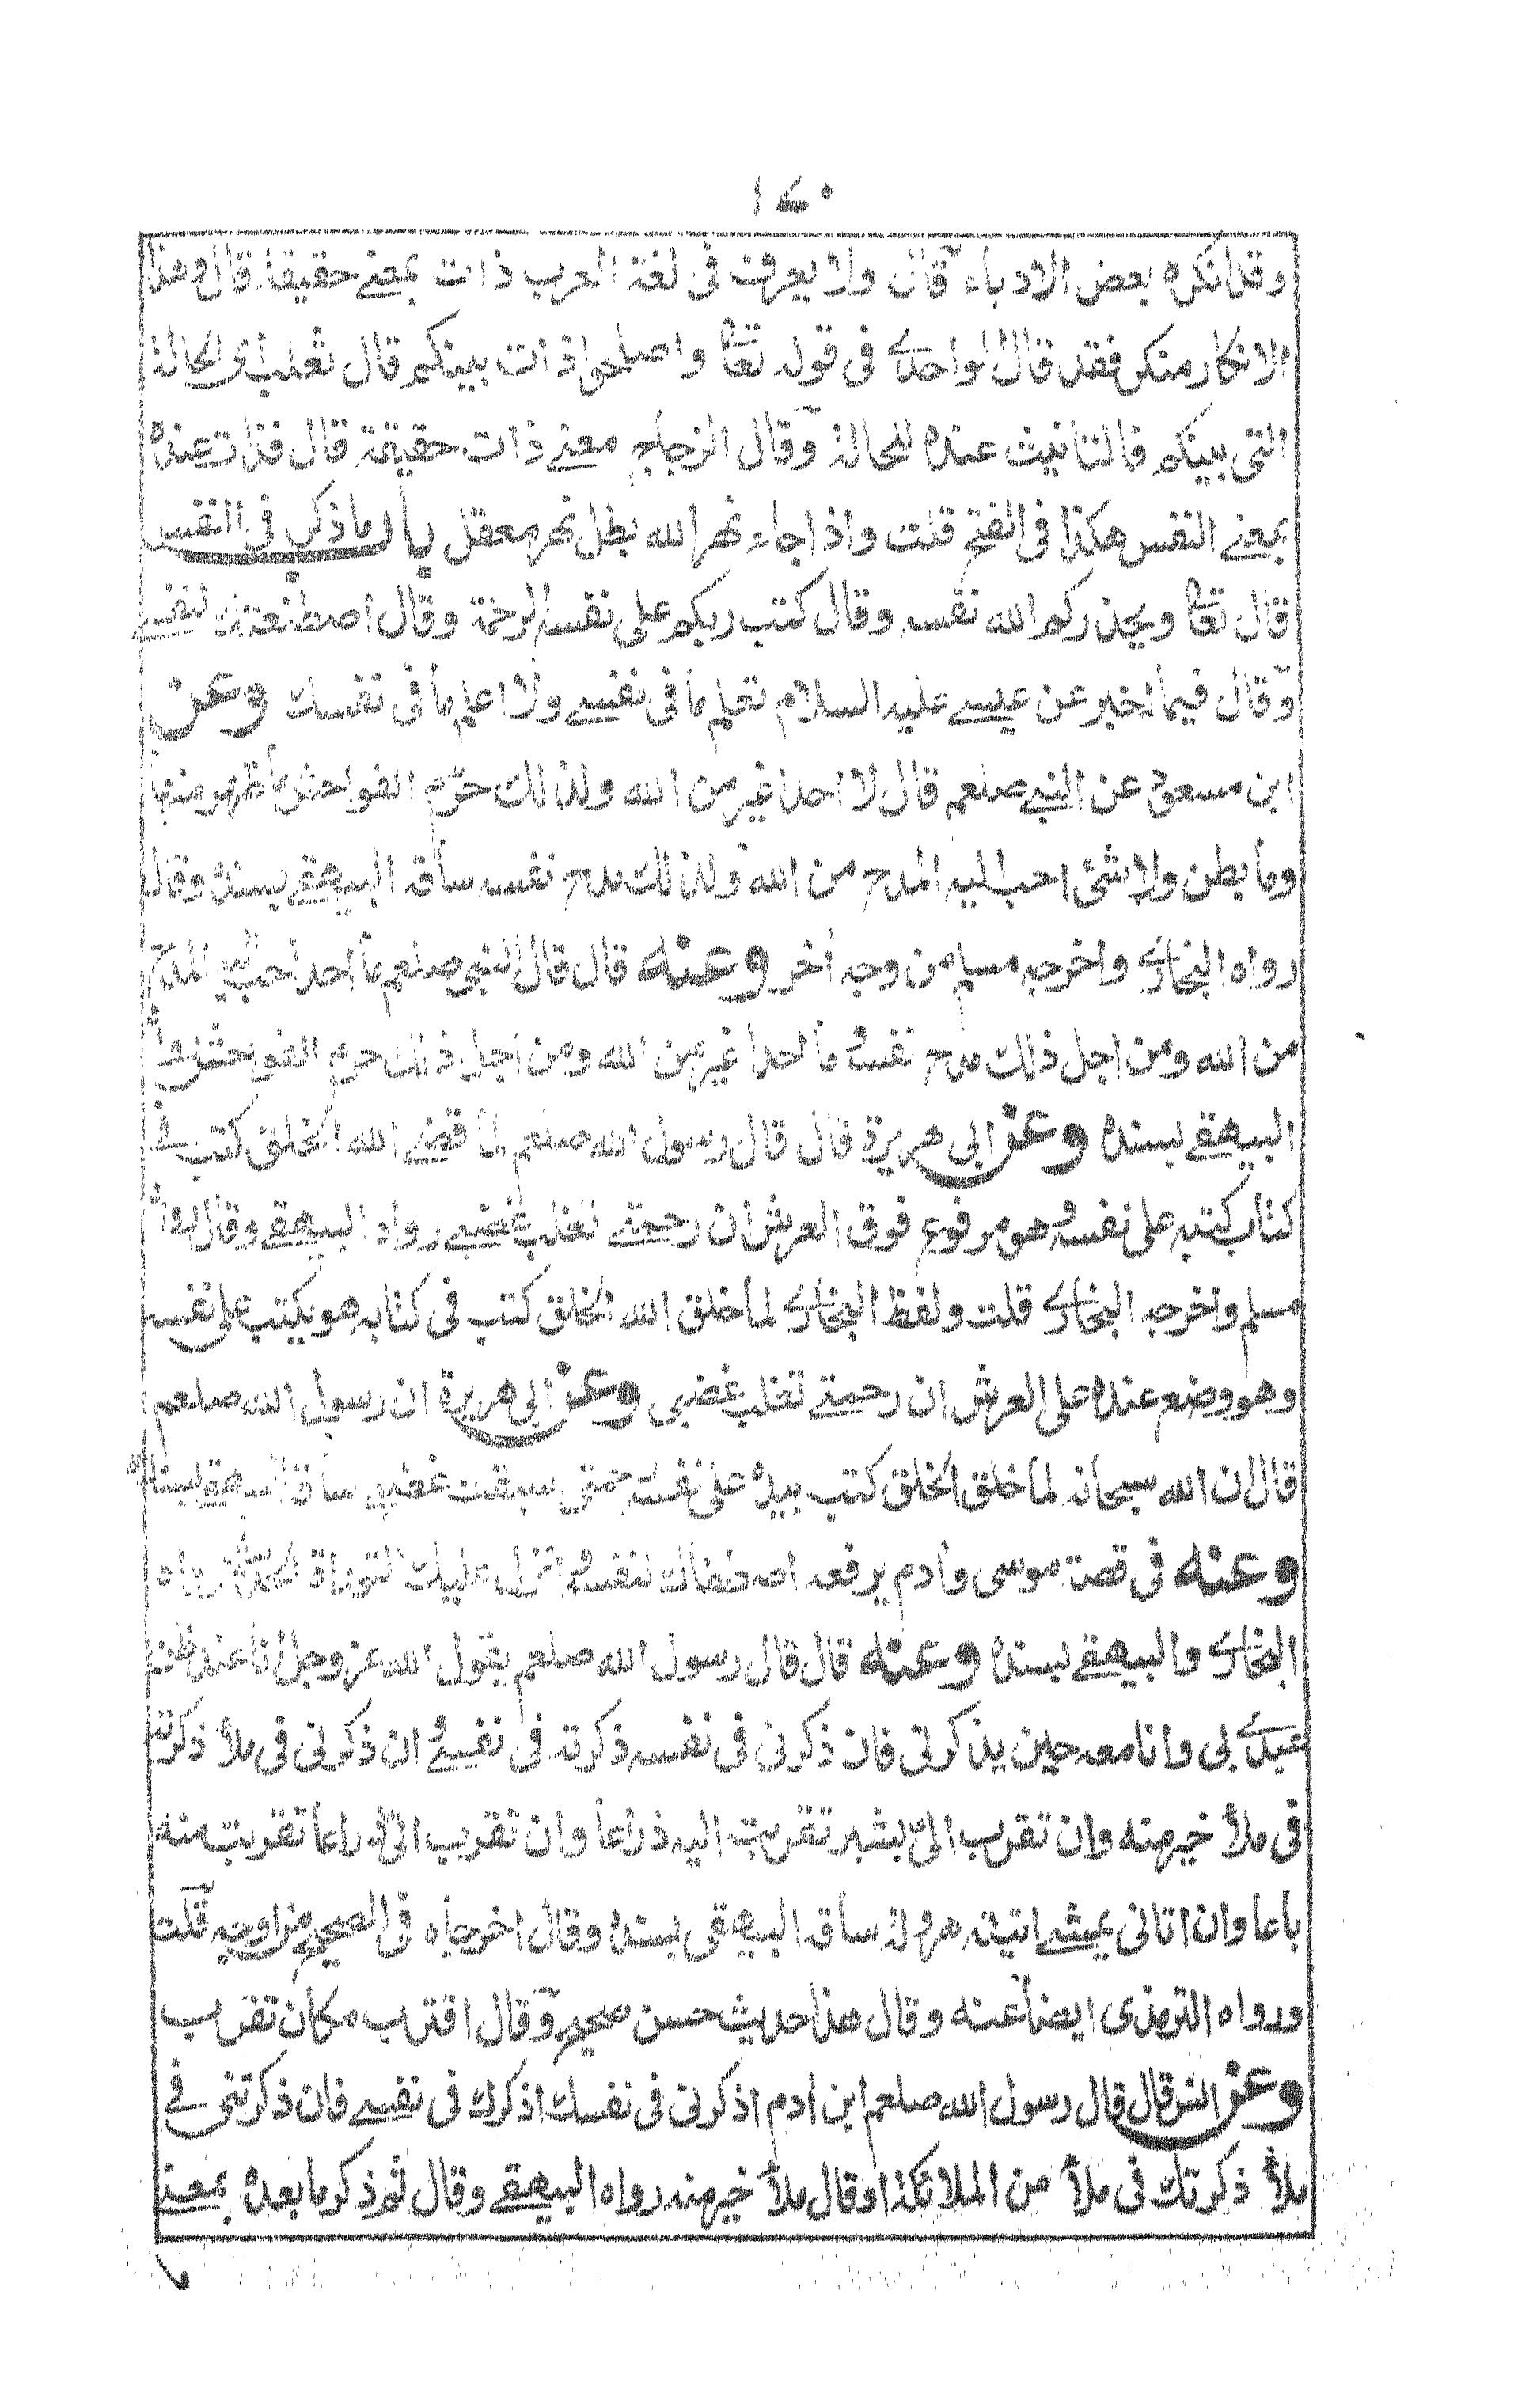 ١٤٠
وقد انكره بعض الادباء وقال ولا يعرف فى لغة العرب ذات بمعنى حقيقة قال وهذا
الانكار منكر فقد قال الواحدى فى قوله تعالى واصلحوا ذات بينكم قال ثعلب اى الحالة
التى بينكم فالتانيث عنده للحالة وقال الزجاج معنى ذات حقيقة قال فذات عنده
بمعنى النفس هكذا فى الفتح قلت واذا جاء نهر الله بطل نهر معقل باب ما ذكر فى النفس
قال تعالى ويحذركم الله نفسه وقال كتب ربكم على نفسه الرحمة وقال اصطنعتك لنفسى
وقال فيما اخبر عن عيسى عليه السلام تعلم ما فى نفسى ولا اعلم ما فى نفسك وعن
ابن مسعود عن النبى صلعم قال لا احد اغير من الله ولذلك حرم الفواحش ما ظهر منها
وما بطن ولا شئ احب اليه المدح من الله ولذلك مدح نفسه ساقه البيهقى بسنده وقال
رواه البخارى واخرجه مسلم من وجه اخر وعنه قال قال النبى صلعم ما احد احب اليه المدح
من الله ومن اجل ذلك مدح نفسه وما احد اغير من الله ومن اجل ذلك حرم الفواحش رواه
البيهقى بسنده وعن ابى هريرة قال قال رسول الله صلعم لما قضى الله الخلق كتب فى
كتاب كتبه على نفسه وهو مرفوع فوق العرش ان رحمتى تغلب غضبى رواه البيهقى وقال رواه
مسلم واخرجه البخارى قلت ولفظ البخارى لما خلق الله الخلق كتب فى كتابه هو يكتب على نفسه
وهو وضع عنده على العرش ان رحمتى تغلب غضبى وعن ابى هريرة ان رسول الله صلعم
قال ان الله سبحانه لما خلق الخلق كتب بيده على نفسه رحمتى سبقت غضبى ساقه البيهقى بسنده
وعنه فى قصة موسى وادم يرفعه اصطفاك لنفسه وانزل عليك التوراة رواه
البخارى والبيهقى بسنده وعنه قال قال رسول الله صلعم يقول الله عز وجل انا عند ظن
عبدى بى وانا معه حين يذكرنى فان ذكرنى فى نفسه ذكرته فى نفسى وان ذكرنى فى ملأ ذكرته
فى ملأ خير منه وان تقرب الىّ بشبر تقربت اليه ذراعا وان تقرب الىّ ذراعا تقربت منه
باعا وان اتانى يمشى اتيته هرولة ساقه البيهقى بسنده وقال اخرجاه فى الصحيح من اوجه قلت
ورواه الترمذى ايضا عنه وقال هذا حديث حسن صحيح وقال اقترب مكان تقرب
وعن انس قال قال رسول الله صلعم ابن ادم اذكرنى فى نفسك اذكرك فى نفسى فان ذكرتنى فى
ملأ ذكرتك فى ملأ من الملائكة او قال ملأ خير منه رواه البيهقى وقال ثم ذكر ما بعده بمعنى